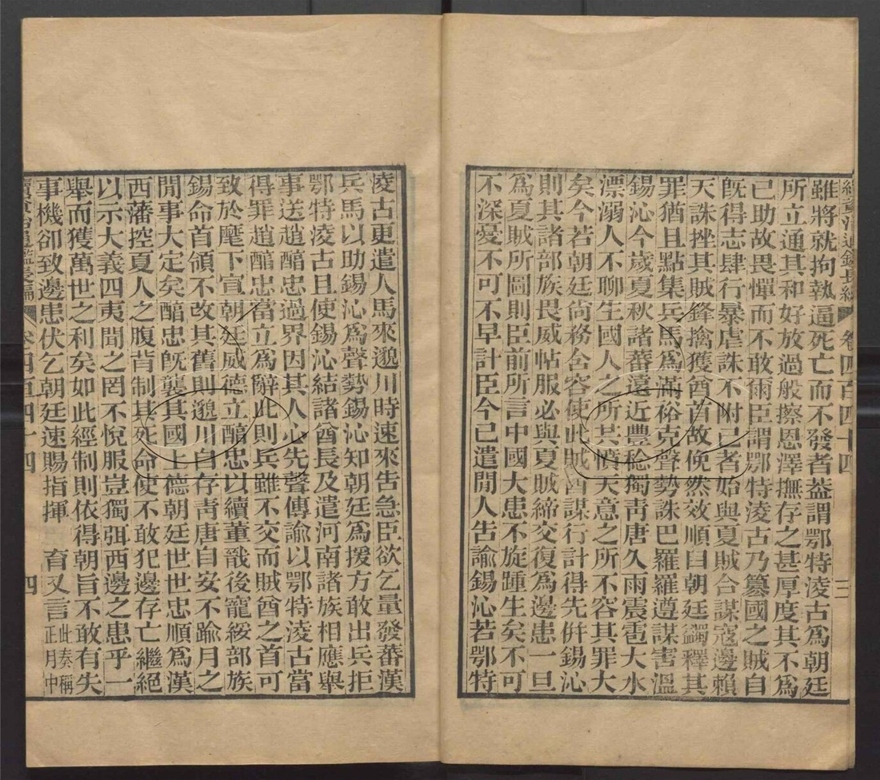 續資治通鑑長編 卷四百四十四 三
雖將就拘執逼死亡而不發者葢謂鄂特淩古爲朝廷
所立通其和好放過般擦恩澤撫存之甚厚度其不爲
己助故畏憚而不敢爾臣謂鄂特淩古乃簒國之賊自
旣得志肆行暴虐誅不附己者始與夏賊合謀寇邊賴
天誅挫其賊鋒擒獲酋首故俛然效順曰朝廷蠲釋其
罪猶且點集兵馬爲滿裕克聲勢誅巴羅羅遵謀害溫
錫沁今歲夏秋諸蕃遠近豐稔獨靑唐久雨震雹大水
漂溺人不聊生國人之所共憤天意之所不容其罪大
矣今若朝廷尙務含容使此賊酋謀行計得先併錫沁
則其諸部族畏威帖服必與夏賊締交復爲邊患一旦
爲夏賊所圖則臣前所言中國大患不旋踵生矣不可
不深憂不可不早計臣今已遣閒人告諭錫沁若鄂特
淩古更遣人馬來邈川時速來吿急臣欲乞量發蕃漢
兵馬以助錫沁爲聲勢錫沁知朝廷爲援方敢出兵拒
鄂特淩古且使錫沁結諸酋長及遣河南諸族相應舉
事送趙醕忠過界因其人心先聲傳諭以鄂特淩古當
得罪趙醕忠當立爲辭此則兵雖不交而賊酋之首可
致於麾下宣朝廷威德立醕忠以續董戩後寵綏部族
錫命首領不改其舊則邈川自存靑唐自安不踰月之
閒事大定矣醕忠旣襲其國上德朝廷世世忠順爲漢
西藩控夏人之腹背制其死命使不敢犯邊存亡繼絕
以示大義四夷聞之罔不悅服豈獨弭西邊之患乎一
舉而獲萬世之利矣如此經制則依得朝旨不敢有失
事機卻致邊患伏乞朝廷速賜指揮 育又言此奏稱正月中
續資治通鑑長編 卷四百四十四 四